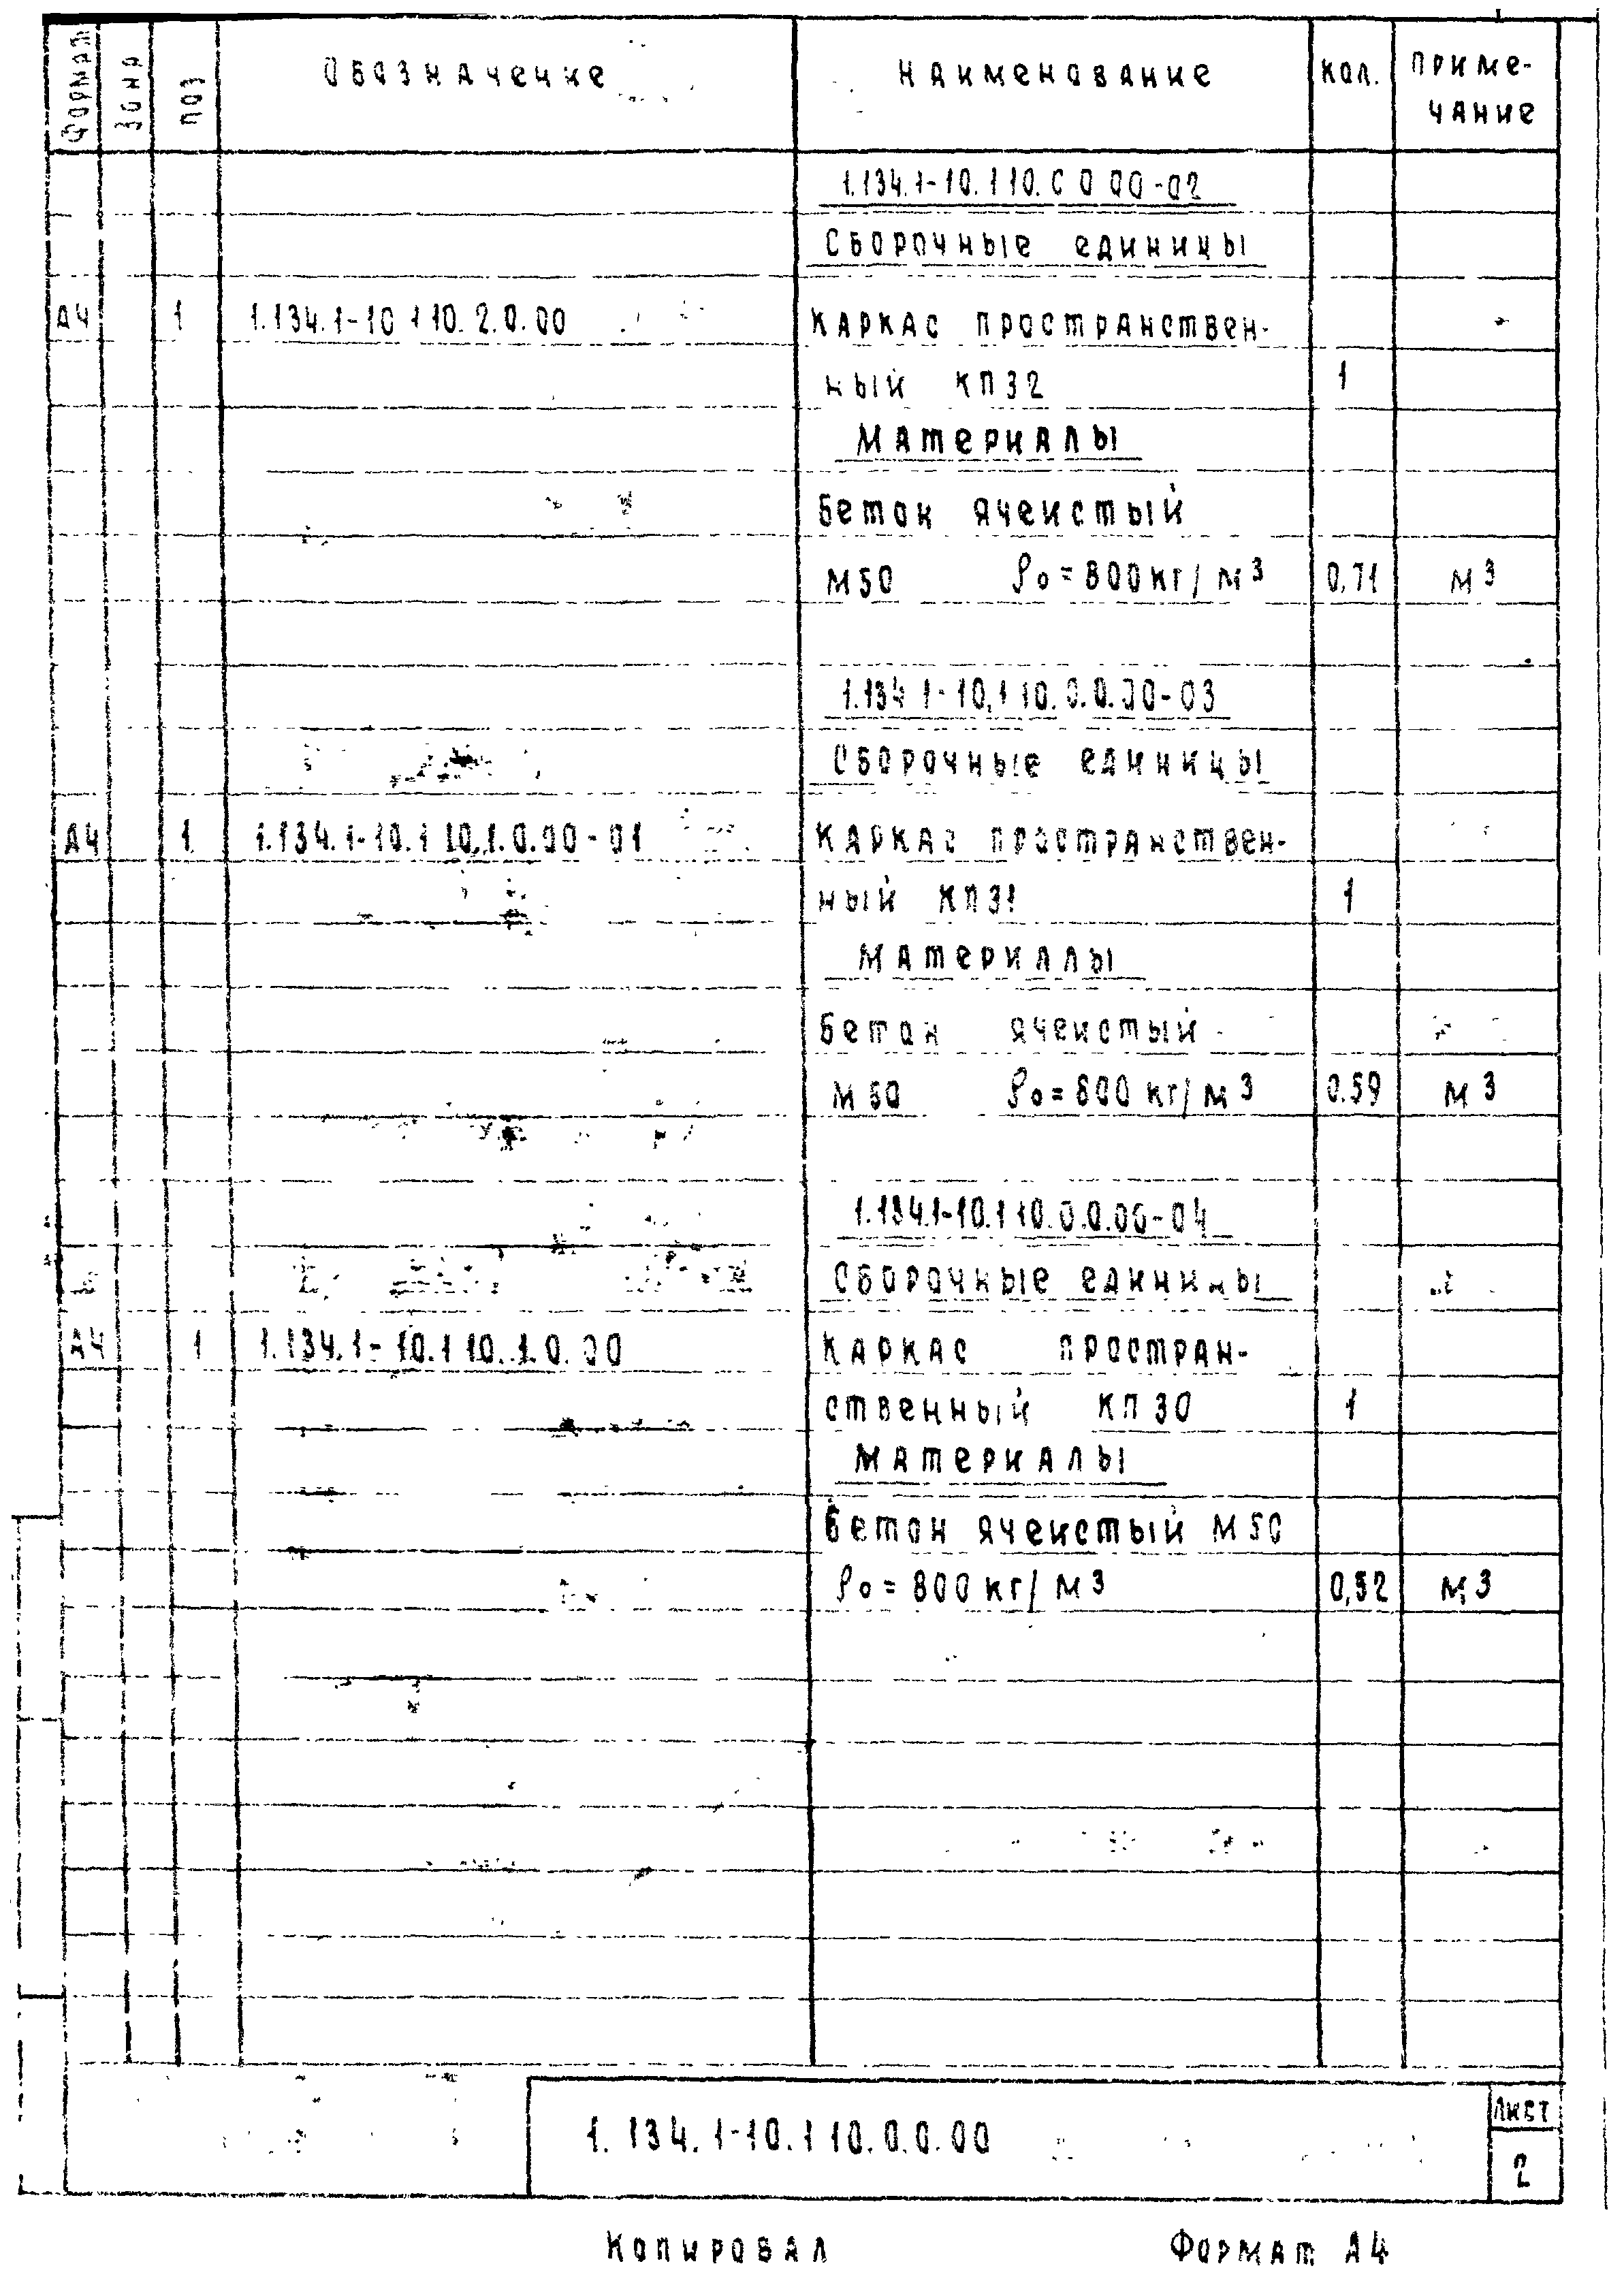 Формат Зона Поз Обозначение Наименование Кол. Приме-
чание
1.134.1-10.1 10.0 0 00-02
Сборочные единицы
А4 1 1.134.1-10 1 10.2.0.00 Каркас пространствен-
ный КП32 1
Материалы
Бетон ячеистый
М50 ρо=800кг/м3 0,71 м3
1.134 1-10.1 10.0.0.00-03
Сборочные единицы
А4 1 1.134.1-10.1 10.1.0.00-01 Каркас пространствен-
ный КП31 1
Материалы
Бетон ячеистый
М50 ρо=800 кг/м3 0.59 м3
1.134.1-10.1 10.0.0.00-04
Сборочные единицы
А4 1 1.134.1-10.1 10.1.0.00 Каркас простран-
ственный КП30 1
Материалы
Бетон ячеистый М50
ρо=800кг/м3 0,52 м3
1.134.1-10.1 10.0.0.00
Лист
2
Копировал Формат А4